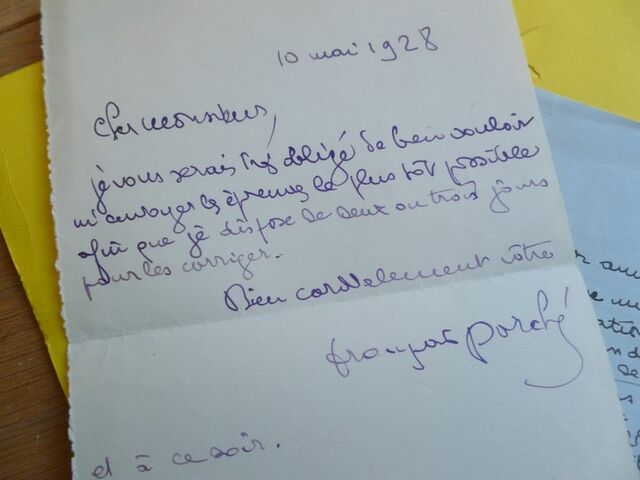 10 mai 1928
Cher Monsieur,
je vous serais très obligé de bien vouloir
m'envoyer les épreuves le plus tôt possible
afin que je dispose de deux ou trois jours
pour les corriger.
Bien cordialement vôtre
françois porché
et à ce soir.